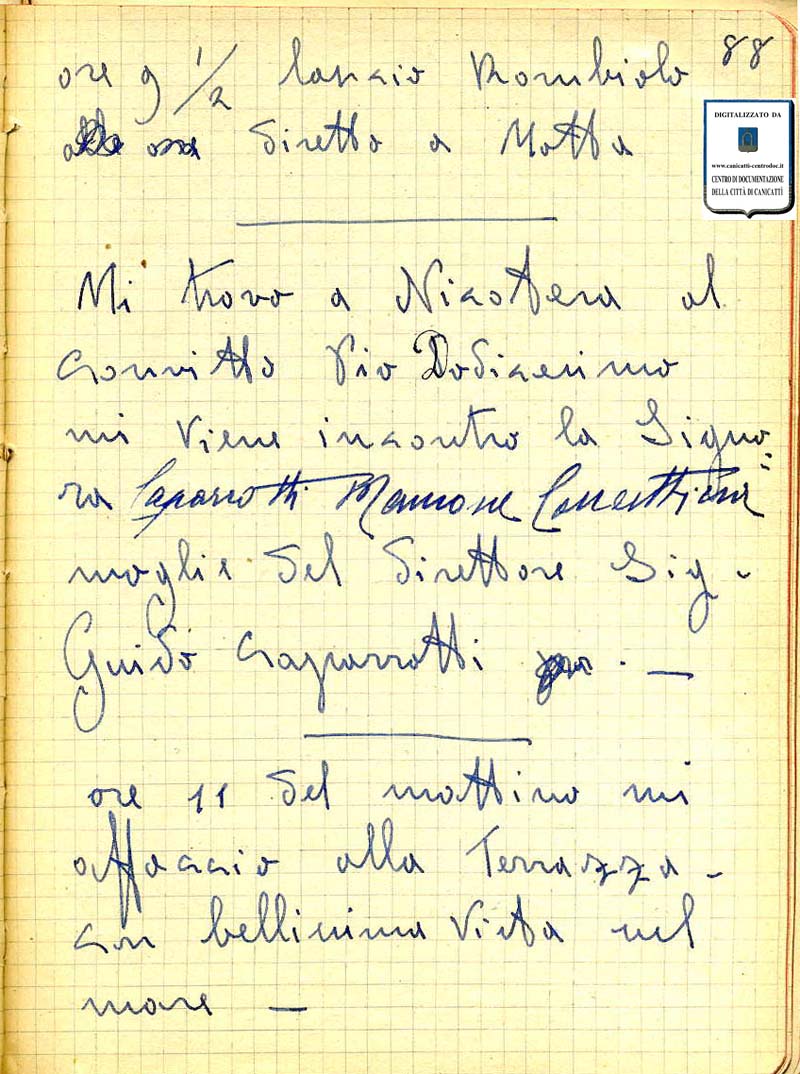 88
ore 9 1/2 lascio Rombiolo
diretto a Motta
DIGITALIZZATO DA
www.canicatti-centrodoc.it
CENTRO DI DOCUMENTAZIONE
DELLA CITTÀ DI CANICATTÌ
Mi trovo a Nicotera al
Convitto Pio Dodicesimo
mi viene incontro la Signo-
ra Caparrotti Mamone
moglie del direttore Sig-
Guido Caparrotti . —
ore 11 del mattino mi
affaccio alla Terrazza -
con bellissima vista nel
mare —